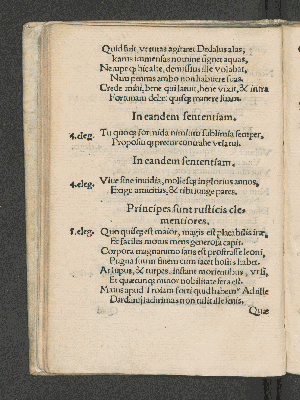 Quid fuit, ut tutas agitaret Dedalus alas,
Icarus immensas nomine signet aquas,
Nempe quod hic alte, demissius ille volabat,
Nam pennas ambo non habuere suas.
Crede mihi, bene qui latuit, bene vixit, & intra
Fortunam debet quisque manere suam.
In eandem sententiam.
4. eleg. Tu quoque formida nimium sublimia semper,
Propositique precor contrahe vela tui.
In eandem sententiam.
4. eleg. Vive sine invidia, mollesque inglorius annos,
Exige amicitias, & tibi iunge pares.
Principes sunt rusticis cle
mentiores.
5. eleg. Quo quisque est maior, magis est placabilis irae,
Et faciles motus mens generosa capit.
Corpora magnanimo satis est prostrasse leoni,
Pugna suum finem cum iacet hostis habet.
At lupus, & turpes instant morientibus ursi,
Et quaecunque minor nobilitate fera est.
Maius apud Troiam forti quid habemus Achille
Dardanij lachrimas non tulit ille senis.
Quæ